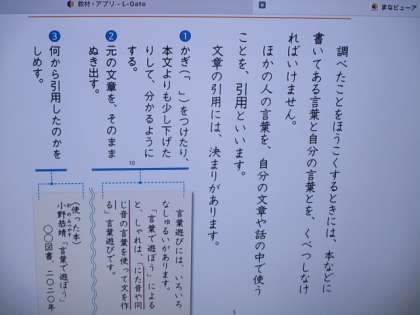 教材・アプリ - L-Gate
まなビューア
調べたことをほうこくするときには、本などに
書いてある言葉と自分の言葉とを、くべつしなけ
ればいけません。
ほかの人の言葉を、自分の文章や話の中で使う
ことを、引用といいます。
文章の引用には、決まりがあります。
1 かぎ(「 」)をつけたり、
本文よりも少し下げた
りして、分かるように
する。
2 元の文章を、そのまま
ぬき出す。
3 何から引用したのかを
しめす。
5
10
言葉遊びには、いろいろ
なしゅるいがあります。
「言葉で遊ぼう」による
と、しゃれは、「にた音や同
じ音の言葉を使って文を作
る」言葉遊びです。
(使った本)
小野恭靖「言葉で遊ぼう」
〇〇図書 二〇二〇年